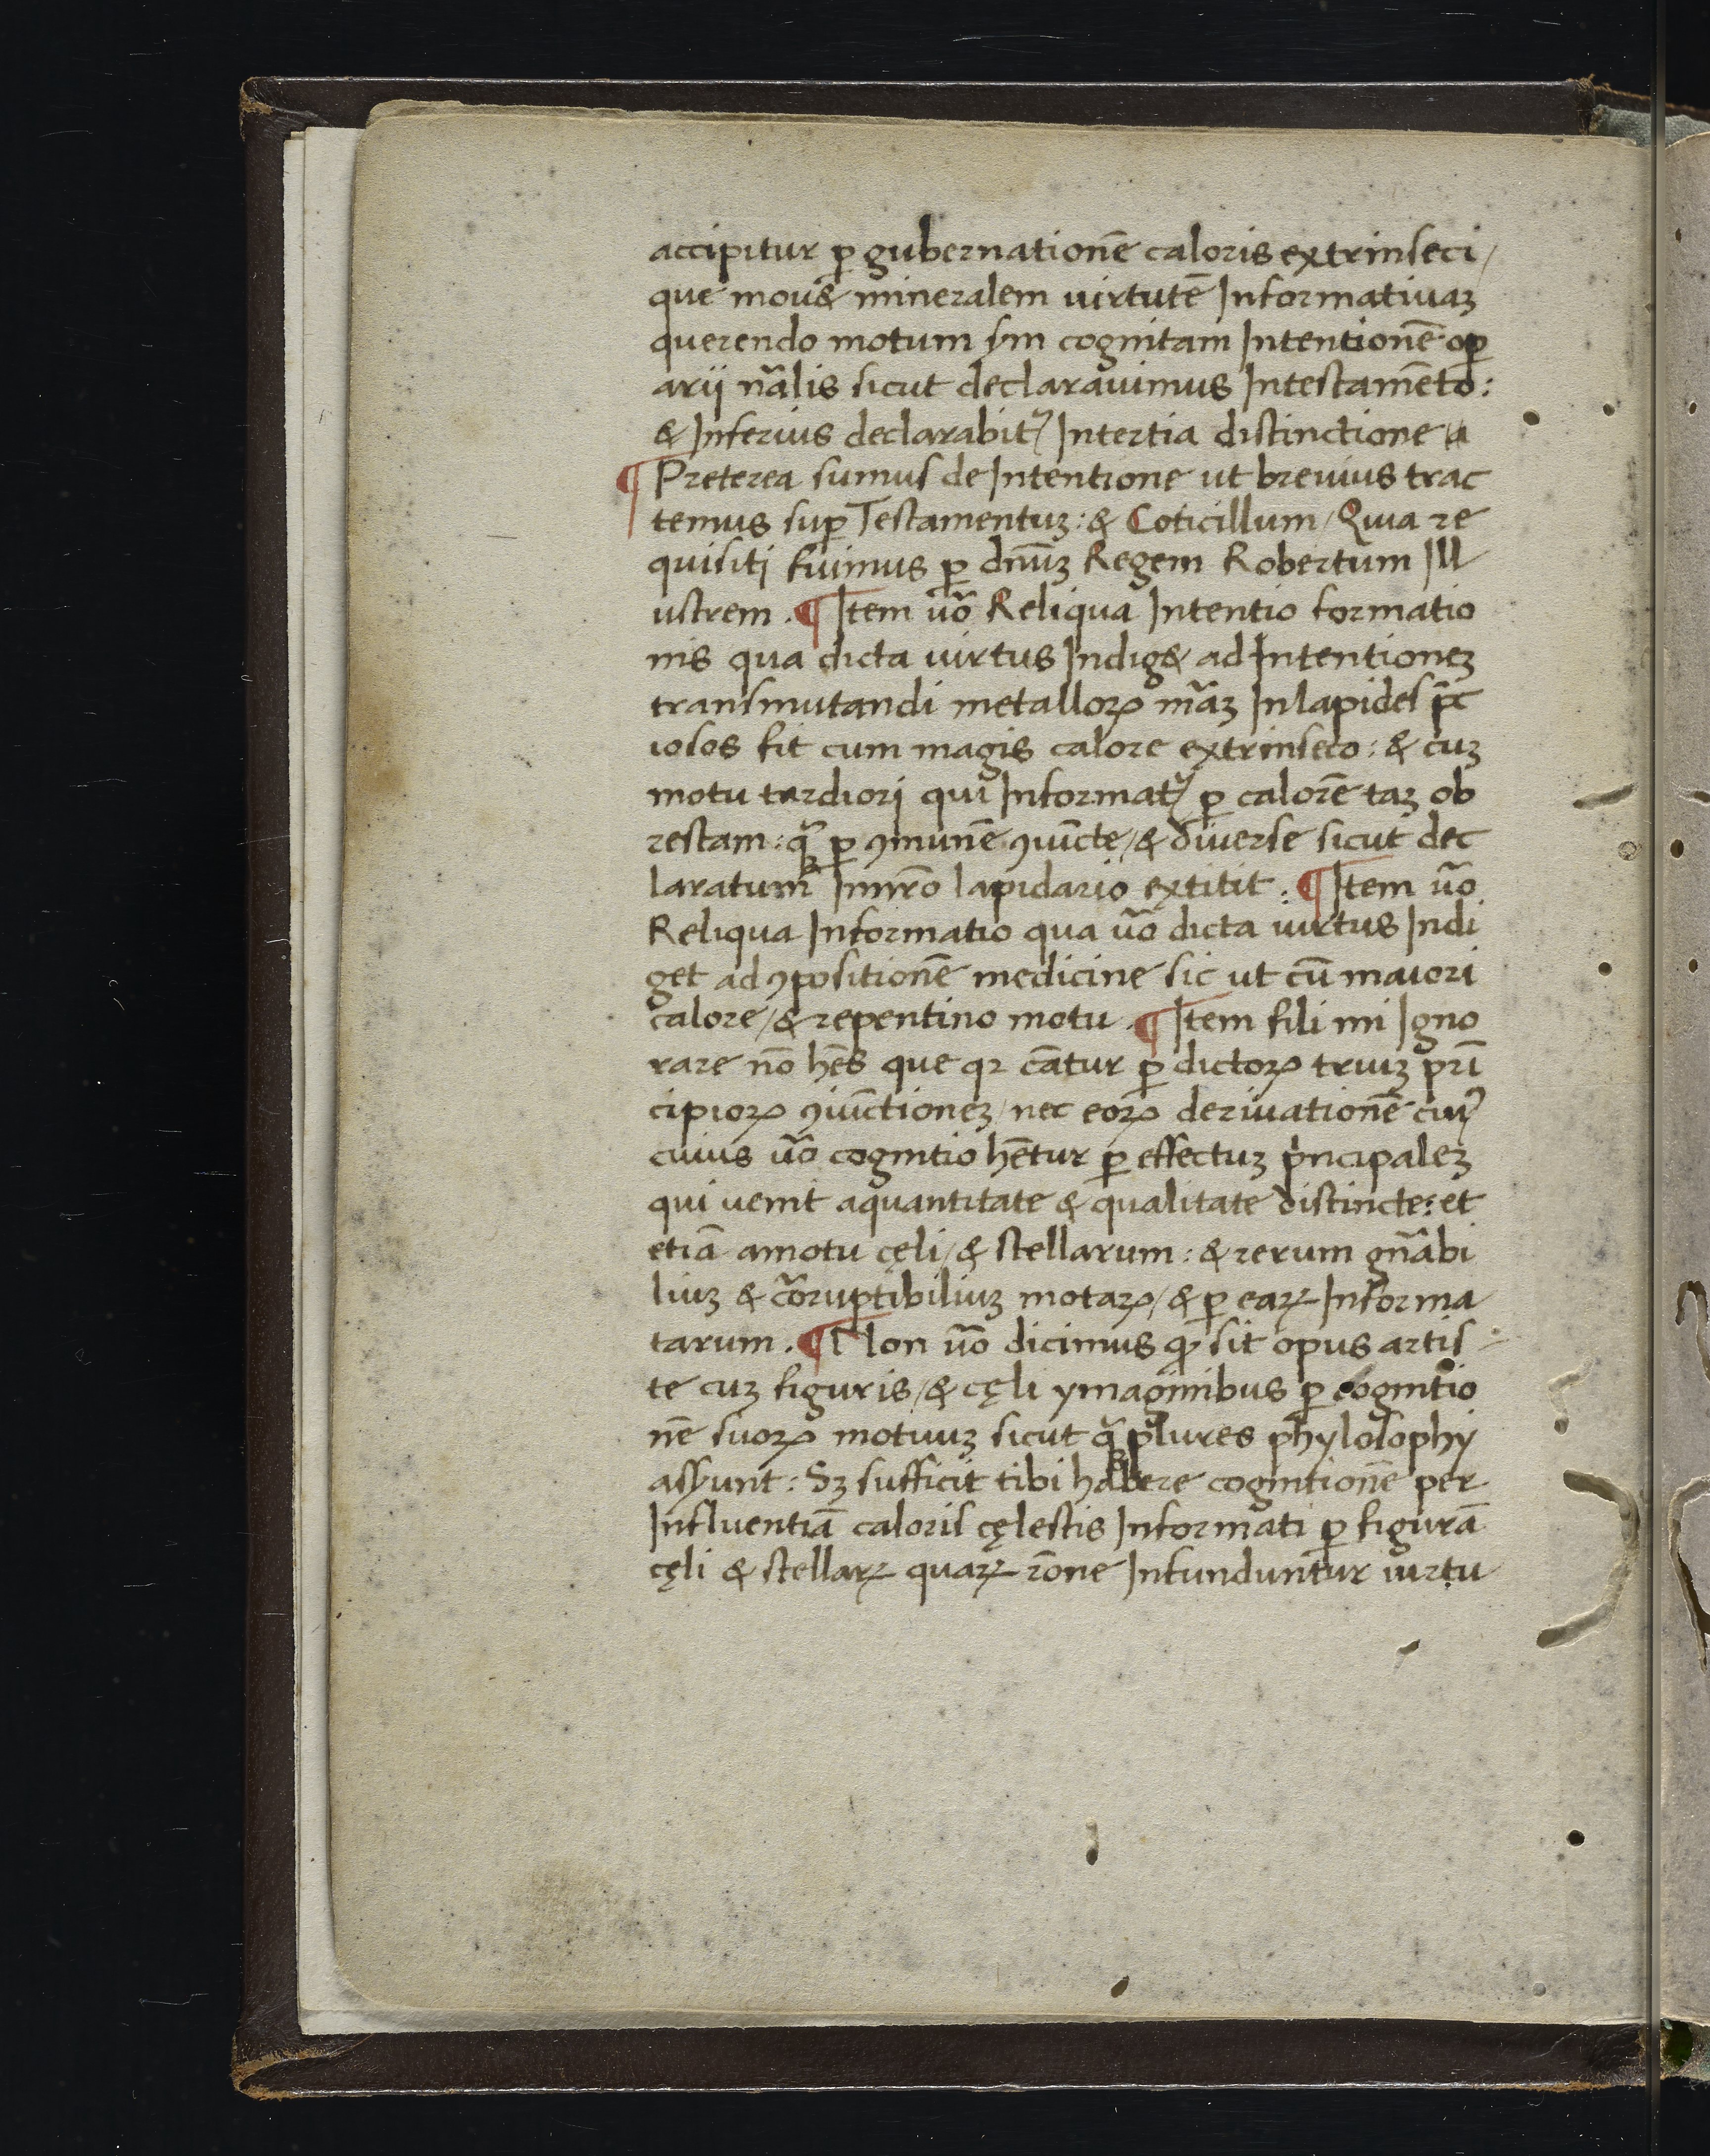 accipitur ꝑ gubernationē caloris extrinseci /
que mou& mineralem uirtutē Informatiuaꝫ
querendo motum sʒm cognitam Intentionē oꝑ
arij nālis sicut declarauimus Intestamēto :
& Inferius declarabit᷑ Intertia distinctione
¶ Preterea sumus de Intentione ut breuius trac
temus suꝑ Testamentuꝫ : & Coticillum / Quia re
quisiti fuimus ꝑ dnūꝫ Regem Robertum Ill
ustrem . ¶ Item uō Reliqua Intentio formatio
nis qua dicta uirtus Indig& ad Intentioneꝫ
transmutandi metalloꝝ māꝫ Inlapides p̄c
iosos fit cum magis calore extrinseco : & cuꝫ
motu tardiori qui Informat᷑ ꝑ calorē taꝫ ob
restam : ꝑ ꝯmunē ꝯiūcte / & diuerse sicut dec
laratum Innr̄o lapidario extitit : ¶ Item uō
Reliqua Informatio qua uō dicta uirtus Indi
get ad ꝯpositionē medicine sic ut cū maiori
calore / & repentino motu . ¶ Item fili mi Igno
rare nō hēs que qꝛ cātur ꝑ dictoꝝ triuꝫ prī
cipioꝝ ꝯiūctioneꝫ / nec eoꝝ deriuationē
cuius uō cognitio hētur ꝑ effectuꝫ pͥncipaleꝫ
qui uenit aquantitate & qualitate distincte : et
etiā amotu cęli / & stellarum : & rerum gn̄abi
liuꝫ & coruptibiliuꝫ motaꝝ / & ꝑ eaꝝ Informa
tarum . ¶ Non uō dicimus ꝙ sit opus artis
te cuꝫ figuris / & cęli ymaginibus ꝑ cognitio
nē suoꝝ motuuꝫ sicut plures phylosophy
asserunt : Sꝫ sufficit tibi habere cognitionē per
Influentiā caloris cęlestis Informati ꝑ figurā
cęli & stellaꝝ quaꝝ rōne Infunduntur uirtu